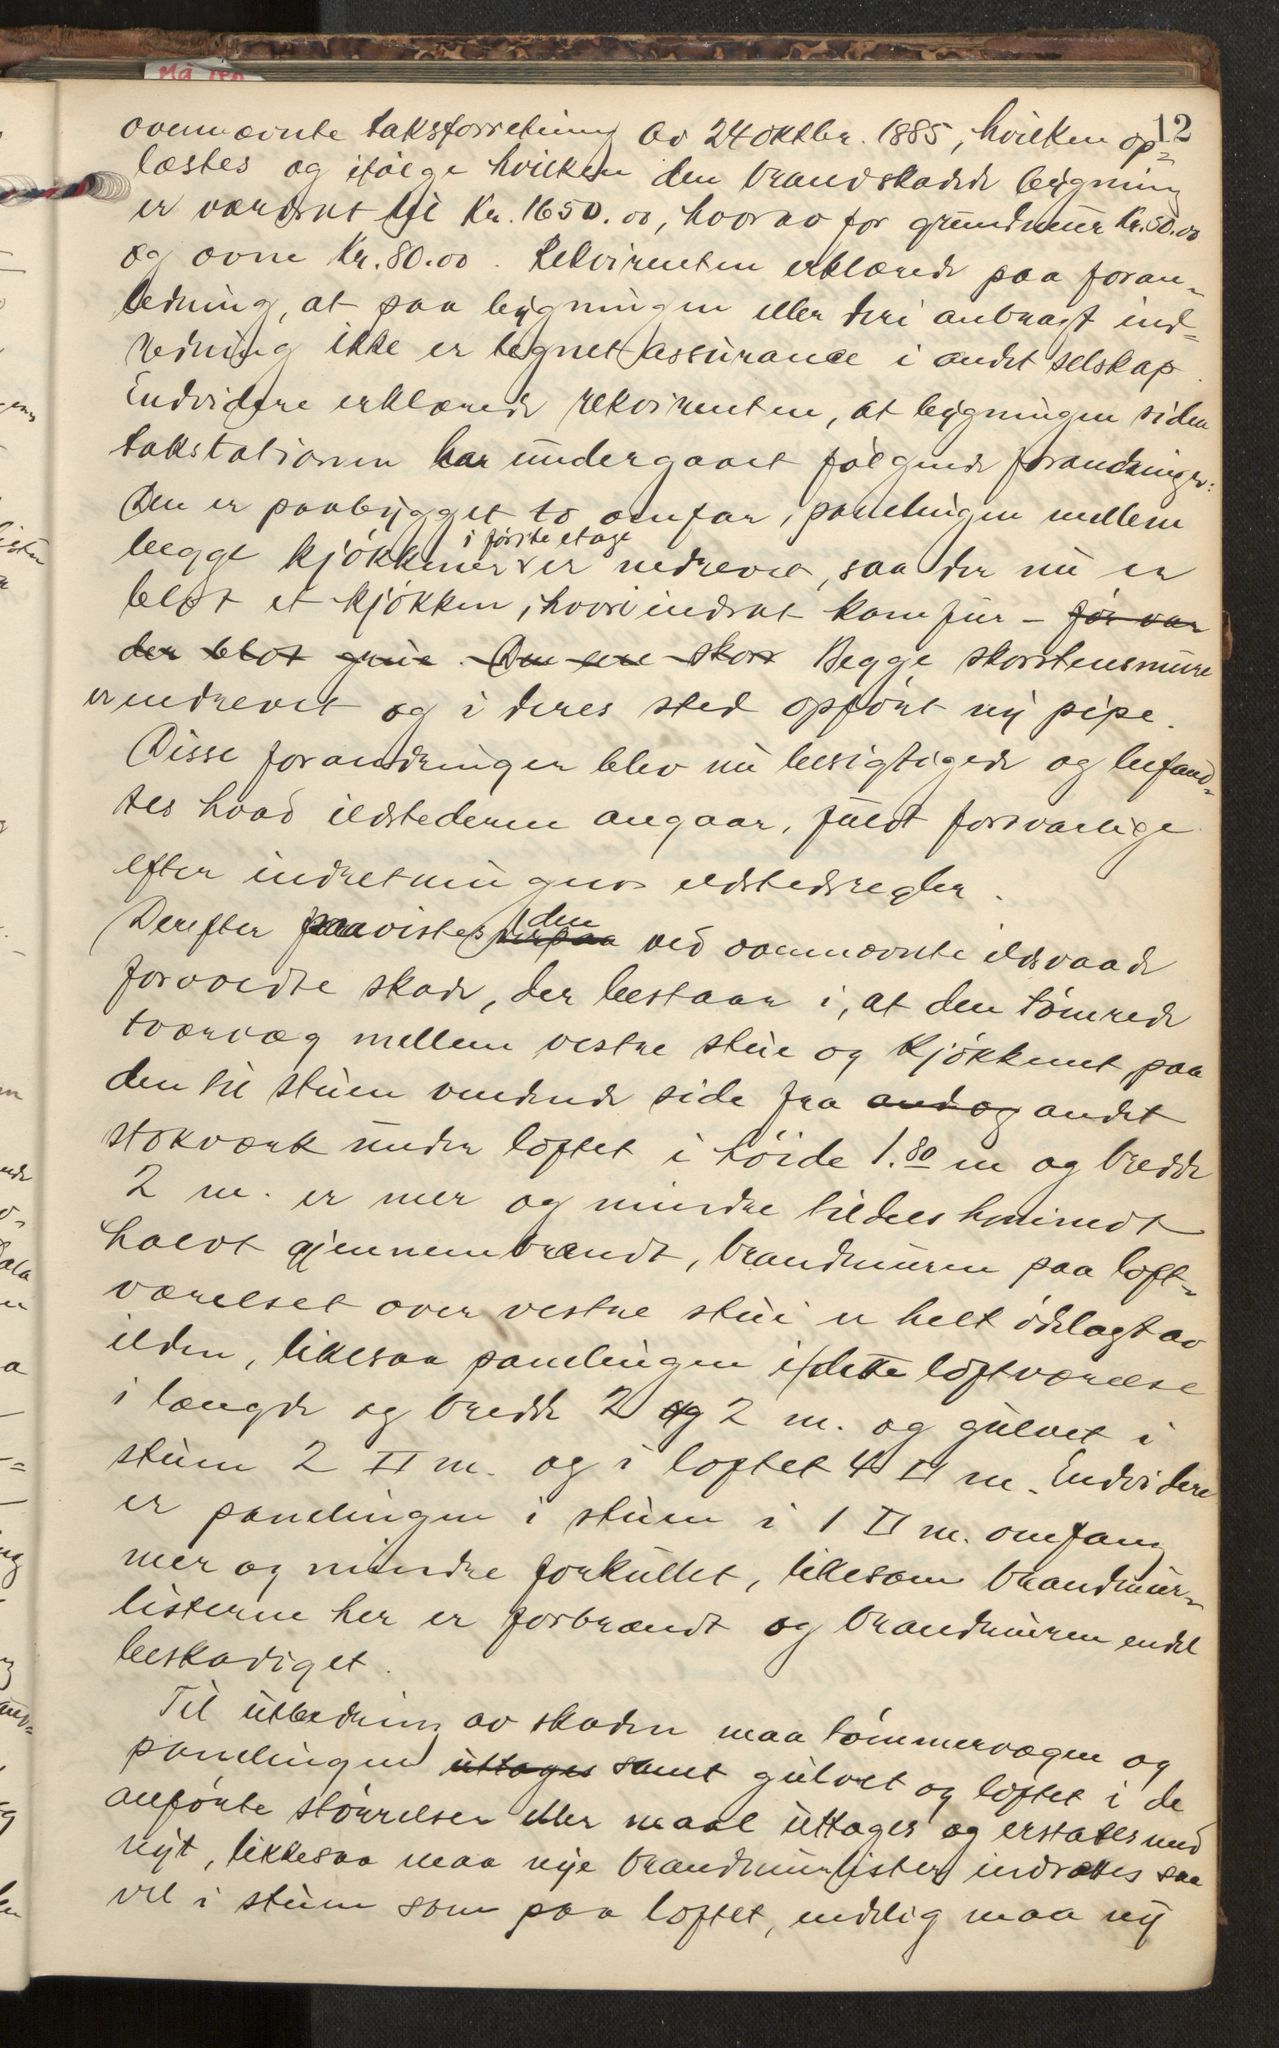 12
ovennævnte taksforretning av 24 oktbr. 1885, hvilken op=
læstes og ifølge hvilken den brandskadede bygning
er værdsat til Kr. 1650.00, hvorav for grundmur Kr. 50.00
og ovne Kr. 80.00. Rekvirenten erklærede paa foran-
ledning, at paa bygningen eller deri anbragt ind=
redning ikke er tegnet assurance i andet selskap.
Endvidere erklærede rekvirenten, at bygningen siden
takstationen har undergaaet følgende forandringer:
Den er paabygget to omfar, panelingen mellem
begge kjøkkener i første etage er nedrevet, saa der nu er
blot et kjøkken, hvori indsat komfur – før var
der blot grue. Den ene skors Begge skorstensmure
er nedrevet og i deres sted opført ny pipe.
Disse forandringer blev nu besigtigede og befand-
tes hvad ildstederne angaar, fuldt forsvarlige
efter indretningens ildstedsregler.
Derefter paavistes derpaa den ved ovennævnte ildsvaade
forvoldte skade, der bestaar i, at den tømrede
tværvæg mellem vestre stue og kjøkkenet paa
den til stuen vendende side fra and og andet
stokværk under loftet i høide 1.80 m og bredde
2 m. er mer og mindre tildels henimot
halvt gjennembrændt, brandmuren paa loft-
værelset over vestre stue er helt ødelagt av
ilden, likesaa panelingen i dette loftværelse
i længde og bredde 2 og 2 m. og gulvet i
stuen 2 □ m. og i loftet 4 □ m. Endvidere
er panelingen i stuen i 1 □ m. omfang
mer og mindre forkullet, likesom brandmur-
listerne her er forbrændt og brandmuren endel
beskadiget.
Til utbedring av skaden maa tømmervægen og
panelingen uttages samt gulvet og loftet i de
anførte størrelser eller maal uttages og erstattes med
nyt, likkesaa maa nye brandmurlister indsættes saa
vel i stuen som paa loftet, endelig maa ny